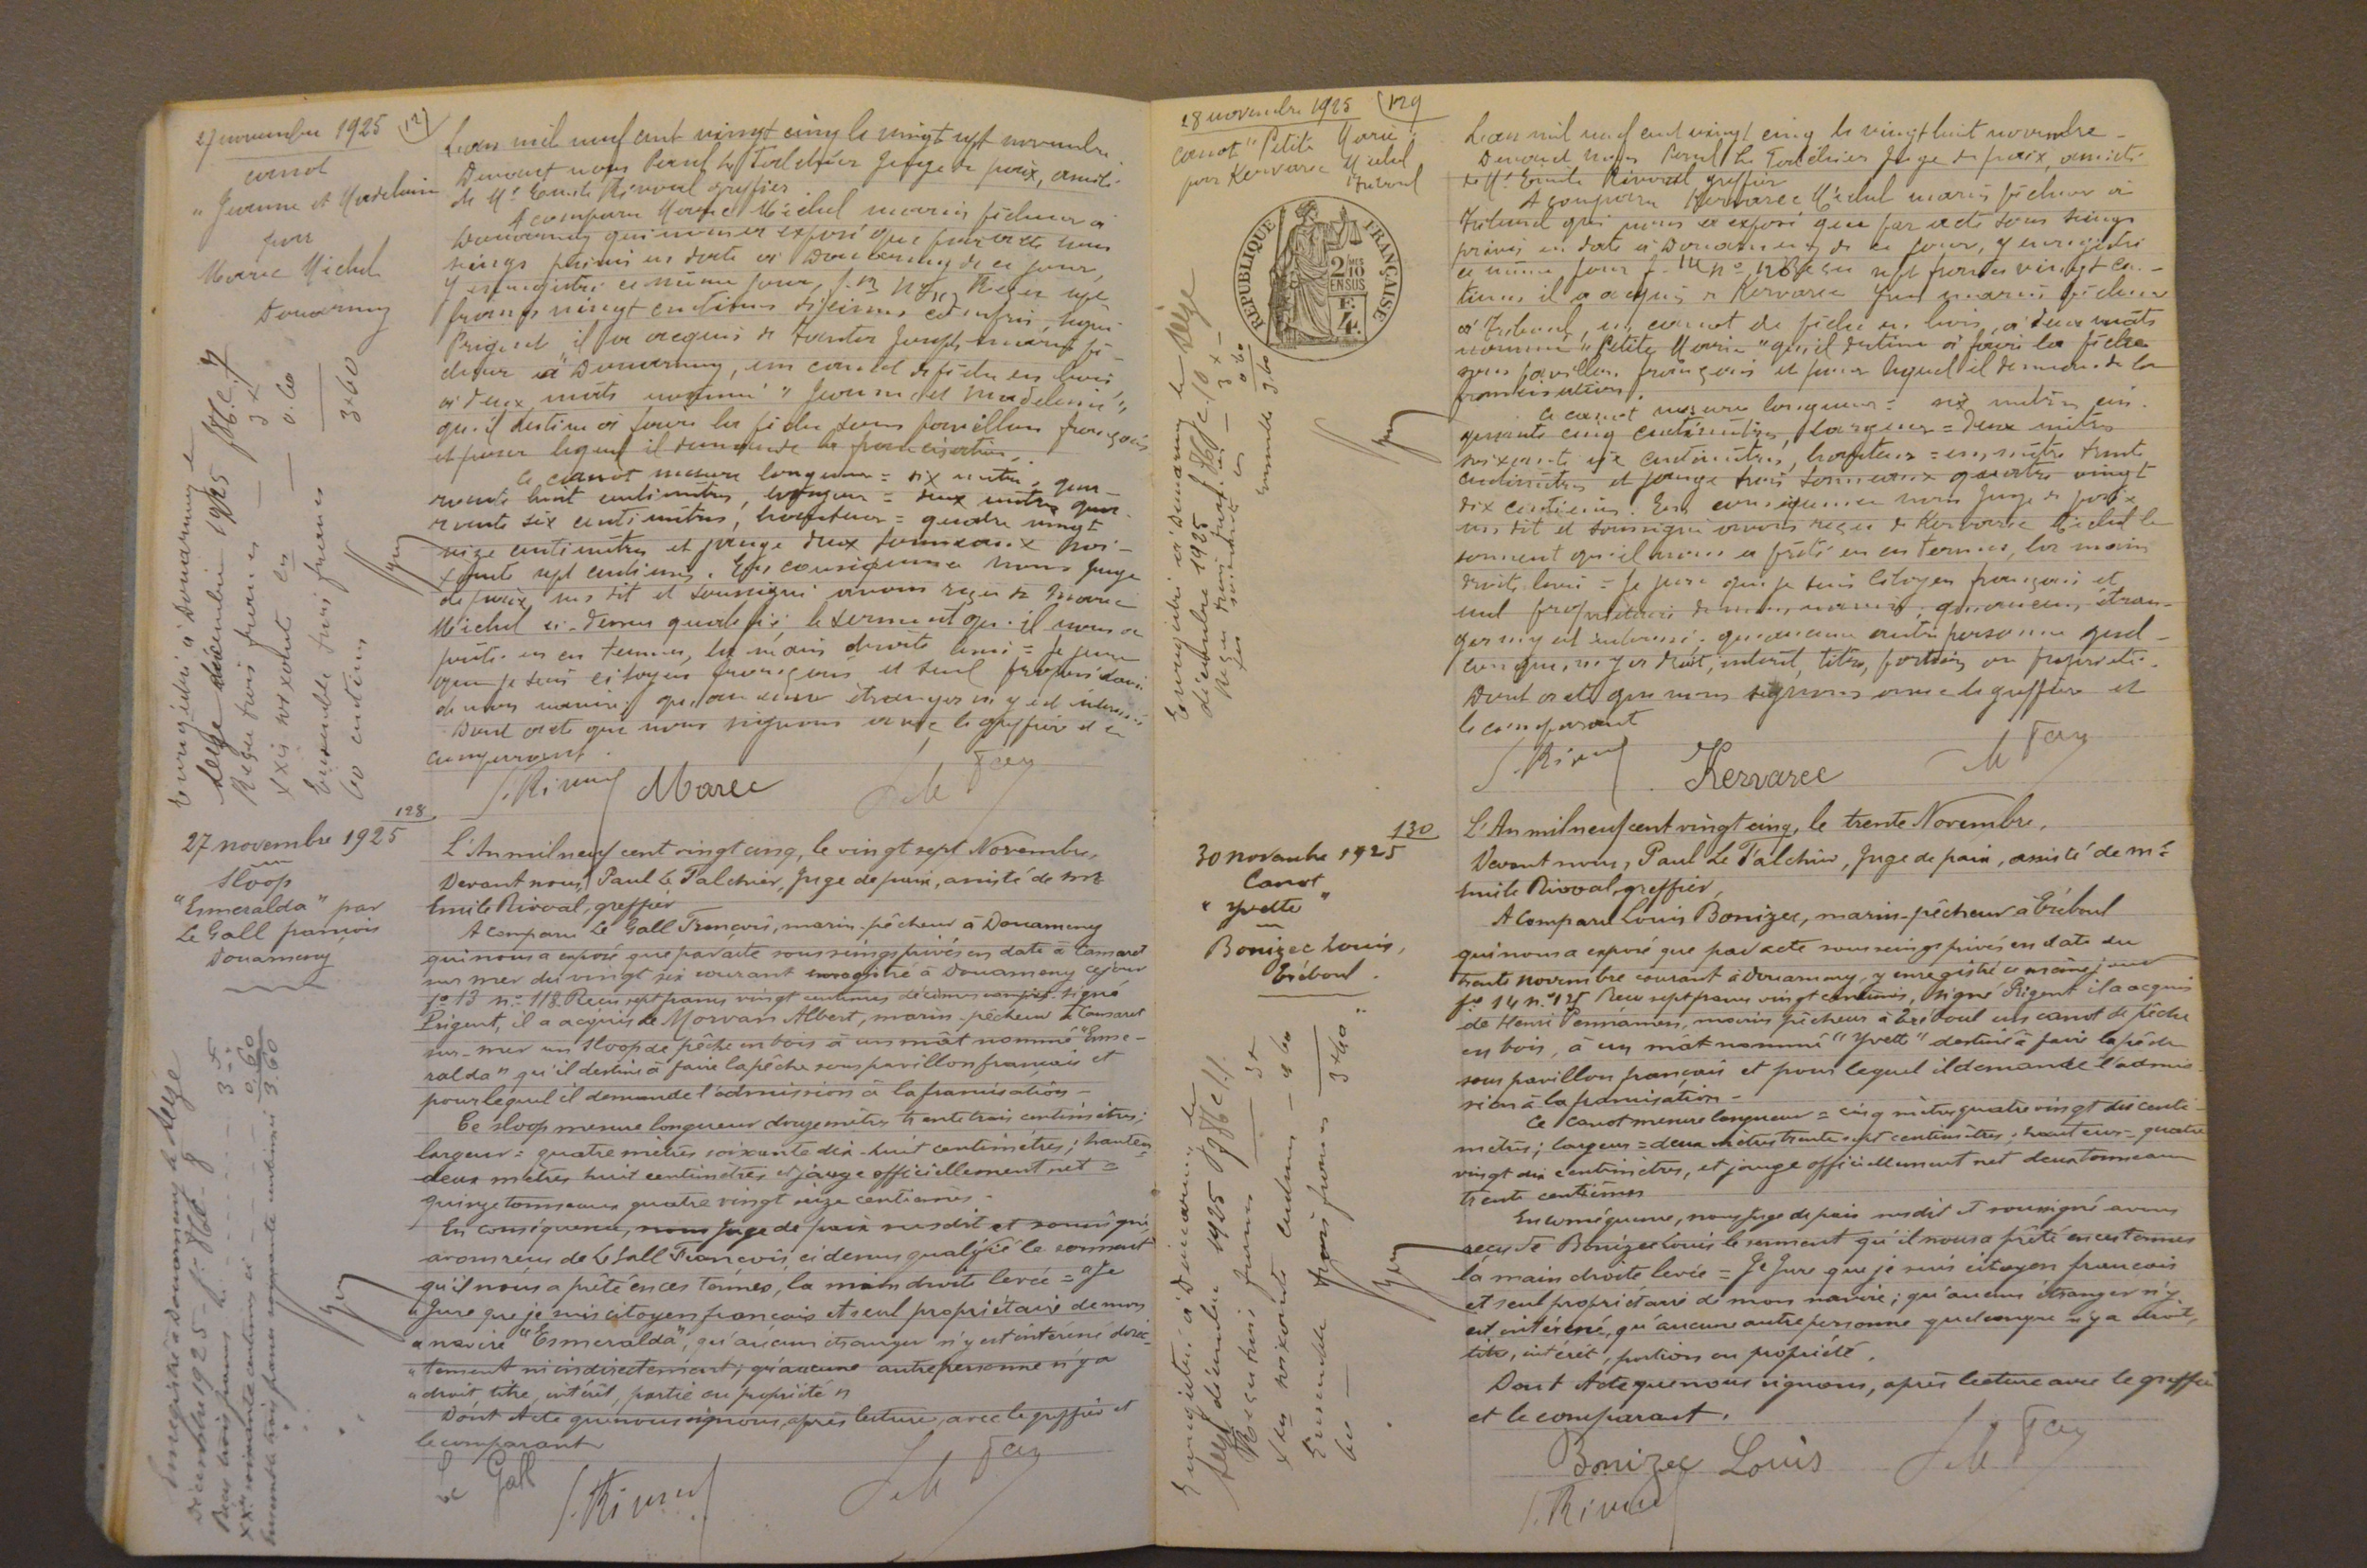 27 novembre 1925
canot
"Jeanne et Madeleine
par
Marec Michel
Douarnenez
Enregistré à Douarnenez le
seize décembre 1925
Reçu trois francs — 3 x
xxis soixante ces — 0.60
Ensemble trois francs 3x60
60 centimes
L'an mil neuf cent vingt cinq le vingt sept novembre
Devant nous Paul Le Talchier Juge de paix, assisté
de Me Emile Rivoal greffier
A comparu Marec Michel marin pêcheur à
Douarnenez qui nous a exposé que par acte sous
seings privés en date à Douarnenez de ce jour,
y enregistré ce même jour, Reçu sept
francs vingt centimes décimes compris, signé
Prigent il a acquis de Joseph marin pê-
cheur à Douarnenez, un canot de pêche en bois
à deux mâts nommé "Jeanne et Madeleine",
qu'il destine à faire la pêche sous pavillon français
et pour lequel il demande la francisation.
Ce canot mesure longueur = six mètres qua-
rante huit centimètres, largeur = deux mètres qua-
rante six centimètres, hauteur = quatre vingt
seize centimètres et jauge deux tonneaux soi-
xante sept centièmes. En conséquence nous Juge
de paix sus dit et soussigné avons reçu de Marec
Michel ci-dessus qualifié le serment qu'il nous a
prêté en ces termes, la main droite levée = Je jure
que je suis citoyen français et seul propriétaire
de mon navire, qu'aucun étranger n'y est intéressé
Dont acte que nous signons avec le greffier et le
comparant.
E. Rivoal Marec
128
27 novembre 1925
Sloop
"Esmeralda" par
Le Gall françois
Douarnenez
Enregistré à Douarnenez le seize
Décembre 1925
Reçu trois francs 3 x
soixante centimes ci 0.60
Ensemble trois francs soixante centimes 3.60
L'An mil neuf cent vingt cinq, le vingt sept Novembre,
Devant nous, Paul Le Talchier, Juge de paix, assisté de Me
Emile Rivoal, greffier
A comparu Le Gall François, marin-pêcheur à Douarnenez
qui nous a exposé que par acte sous seings privés en date à Camaret
sur mer du vingt six courant enregistré à Douarnenez ce jour
fo 13 no 118 Reçu sept francs vingt centimes décimes compris signé
Prigent, il a acquis de Morvan Albert, marin-pêcheur à Camaret
sur-mer un sloop de pêche en bois à un mât nommé "Esme-
ralda" qu'il destine à faire la pêche sous pavillon français et
pour lequel il demande l'admission à la francisation -
Ce sloop mesure longueur douze mètres trente trois centimètres;
largeur = quatre mètres soixante dix-huit centimètres; hauteur
deux mètres huit centimètres et jauge officiellement net =
quinze tonneaux quatre vingt seize centièmes -
En conséquence, nous Juge de paix susdit et soussigné
avons reçu de Le Gall François, ci dessus qualifié le serment
qu'il nous a prêté en ces termes, la main droite levée = "Je
"Jure que je suis citoyen français et seul propriétaire de mon
"navire "Esmeralda", qu'aucun étranger n'y est intéressé direc-
"tement ni indirectement; qu'aucune autre personne n'y a
"droit, titre, intérêt, partie ou propriété"
Dont Acte que nous signons, après lecture, avec le greffier et
le comparant
Le Gall E. Rivoal
28 novembre 1925 129
canot "Petite Marie"
par Kervarec Michel
Tréboul
RÉPUBLIQUE FRANÇAISE
2/10 EN SUS
F. 4.
Enregistré à Douarnenez le seize
décembre 1925
Reçu trois francs — 3 x
soixante ces — 0 60
Ensemble 3 60
L'an mil neuf cent vingt cinq le vingt huit novembre -
Devant nous Paul Le Talchier Juge de paix, assisté
de Me Emile Rivoal greffier
A comparu Kervarec Michel marin pêcheur à
Tréboul qui nous a exposé que par acte sous seings
privés en date à Douarnenez de ce jour, y enregistré
ce même jour Reçu sept francs vingt cen-
times, il a acquis de Kervarec marin pêcheur
à Tréboul, un canot de pêche en bois, à deux mâts
nommé "Petite Marie" qu'il destine à faire la pêche
sous pavillon français et pour lequel il demande la
francisation.
Ce canot mesure longueur = six mètres cin-
quante cinq centimètres, largeur = deux mètres
soixante six centimètres, hauteur = un mètre trente
centimètres et jauge trois tonneaux quatre vingt
dix centièmes. En conséquence nous Juge de paix
sus dit et soussigné avons reçu de Kervarec Michel le
serment qu'il nous a prêté en ces termes, la main
droite levée = Je jure que je suis citoyen français et
seul propriétaire de mon navire, qu'aucun étran-
ger n'y est intéressé, qu'aucune autre personne quel-
conque, n'y a droit, intérêt, titre, portion ou propriété.
Dont acte que nous signons avec le greffier et
le comparant
E. Rivoal Kervarec
130
30 novembre 1925
Canot
"Yvette"
Bonizec Louis,
Tréboul.
Enregistré à Douarnenez le
seize décembre 1925
Reçu trois francs — 3 x
soixante centimes — 0 60
Ensemble trois francs 3x60
60 —
L'An mil neuf cent vingt cinq, le trente Novembre,
Devant nous, Paul Le Talchier, Juge de paix, assisté de Me
Emile Rivoal, greffier,
A comparu Louis Bonizec, marin-pêcheur à Tréboul
qui nous a exposé que par acte sous seings privés en date du
trente novembre courant à Douarnenez, y enregistré ce même jour
fo 14 no 125 Reçu sept francs vingt centimes, signé Prigent il a acquis
de Henri Pennamen, marin pêcheur à Tréboul un canot de pêche
en bois, à un mât nommé "Yvette" destiné à faire la pêche
sous pavillon français et pour lequel il demande l'admis-
sion à la francisation -
Ce canot mesure longueur = cinq mètres quatre vingt dix centi-
mètres; largeur = deux mètres trente sept centimètres; hauteur = quatre
vingt dix centimètres, et jauge officiellement net deux tonneaux
trente centièmes
En conséquence, nous Juge de paix susdit et soussigné avons
reçu de Bonizec Louis le serment qu'il nous a prêté en ces termes
la main droite levée = Je Jure que je suis citoyen français
et seul propriétaire de mon navire; qu'aucun étranger n'y
est intéressé, qu'aucune autre personne quelconque n'y a droit,
titre, intérêt, portion ou propriété.
Dont Acte que nous signons, après lecture avec le greffier
et le comparant.
Bonizec Louis
E. Rivoal